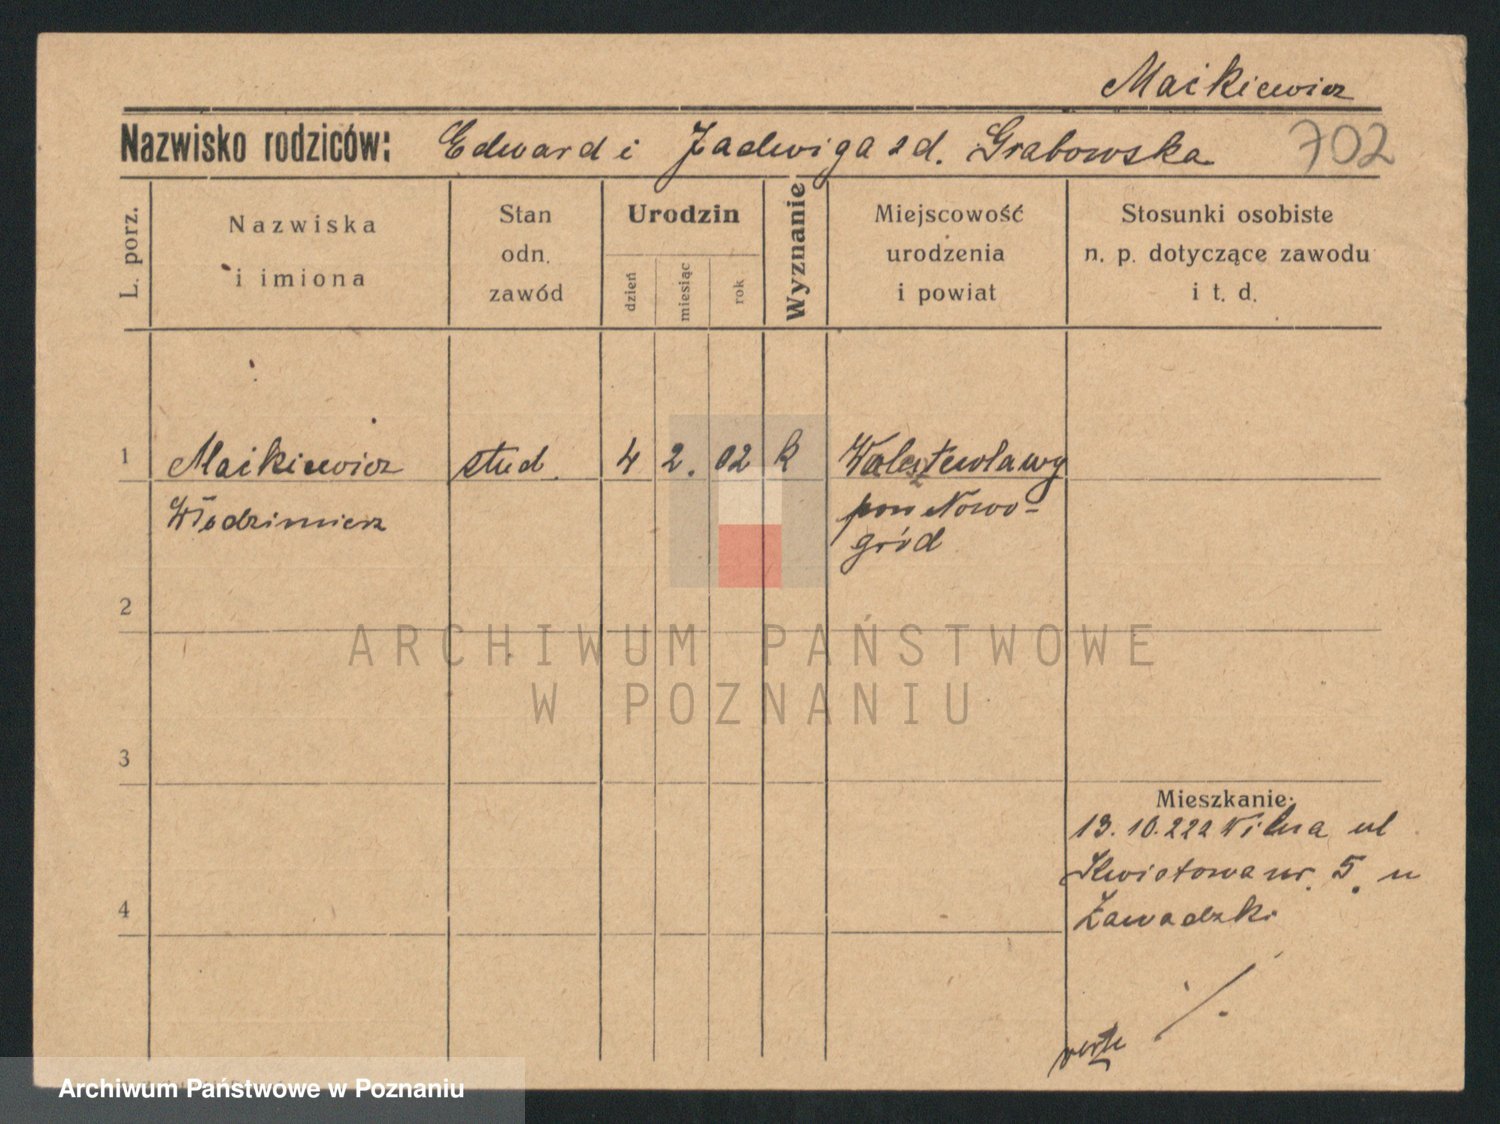 Maćkiewicz
Nazwisko rodziców: Edward i Jadwiga z d. Grabowska 702
L. porz.
Nazwiska
i imiona
Stan
odn.
zawód
Urodzin
dzień
miesiąc
rok
Wyznanie
Miejscowość
urodzenia
i powiat
Stosunki osobiste
n. p. dotyczące zawodu
i t. d.
1 Maćkiewicz stud. 4 2. 02 k
Włodzimierz pow Nowo-
gród
2
ARCHIWUM PAŃSTWOWE
W POZNANIU
3
Mieszkanie:
13. 10. 222 Wilna ul
Kwiatowa nr. 5. u
4 Zawadzki
verte ./.
Archiwum Państwowe w Poznaniu